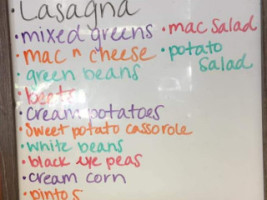 • Lasagna
• mixed greens
• mac n cheese
• green beans
• beets
• cream potatoes
• Sweet potato casserole
• white beans
• black eye peas
• cream corn
• pintos
• mac salad
• potato
salad